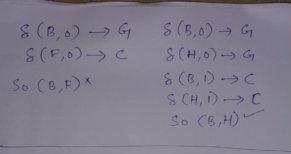 δ(B,0) → G
δ(F,0) → C
So (B,F) ×
δ(B,0) → G
δ(H,0) → G
δ(B,1) → C
δ(H,1) → C
So (B,H) ✓